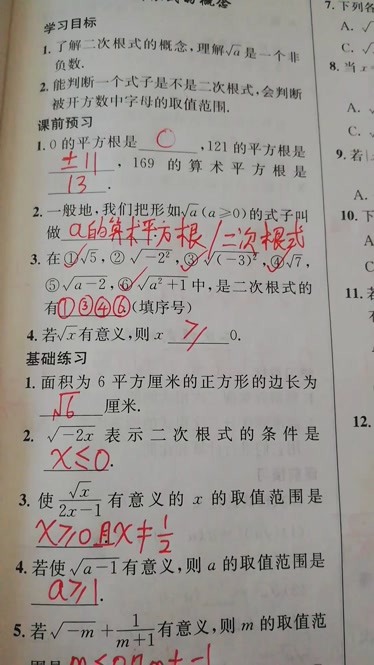 的概念
学习目标
1. 了解二次根式的概念,理解√a是一个非
负数.
2. 能判断一个式子是不是二次根式,会判断
被开方数中字母的取值范围.
课前预习
1. 0 的平方根是 0 ,121 的平方根是
±11 , 169 的算术平方根是
13 .
2. 一般地,我们把形如√a(a≥0)的式子叫
做 a的算术平方根/二次根式
3. 在①√5,② √-2²,③√(-3)²,④√7,
⑤√a-2,⑥√a²+1中,是二次根式的
有①③④⑥(填序号)
4. 若√x有意义,则 x ≥ 0.
基础练习
1. 面积为 6 平方厘米的正方形的边长为
√6 厘米.
2. √-2x 表示二次根式的条件是
x≤0.
3. 使 √x/(2x-1) 有意义的 x 的取值范围是
x≥0且x≠1/2
4. 若使√a-1有意义,则 a 的取值范围是
a≥1.
5. 若√-m+1/(m+1)有意义,则 m 的取值范
7. 下列各
A. √
C. √
8. 当 x
A.
C.
9. 若|
A.
10. 下
A
C
11. 若
12.